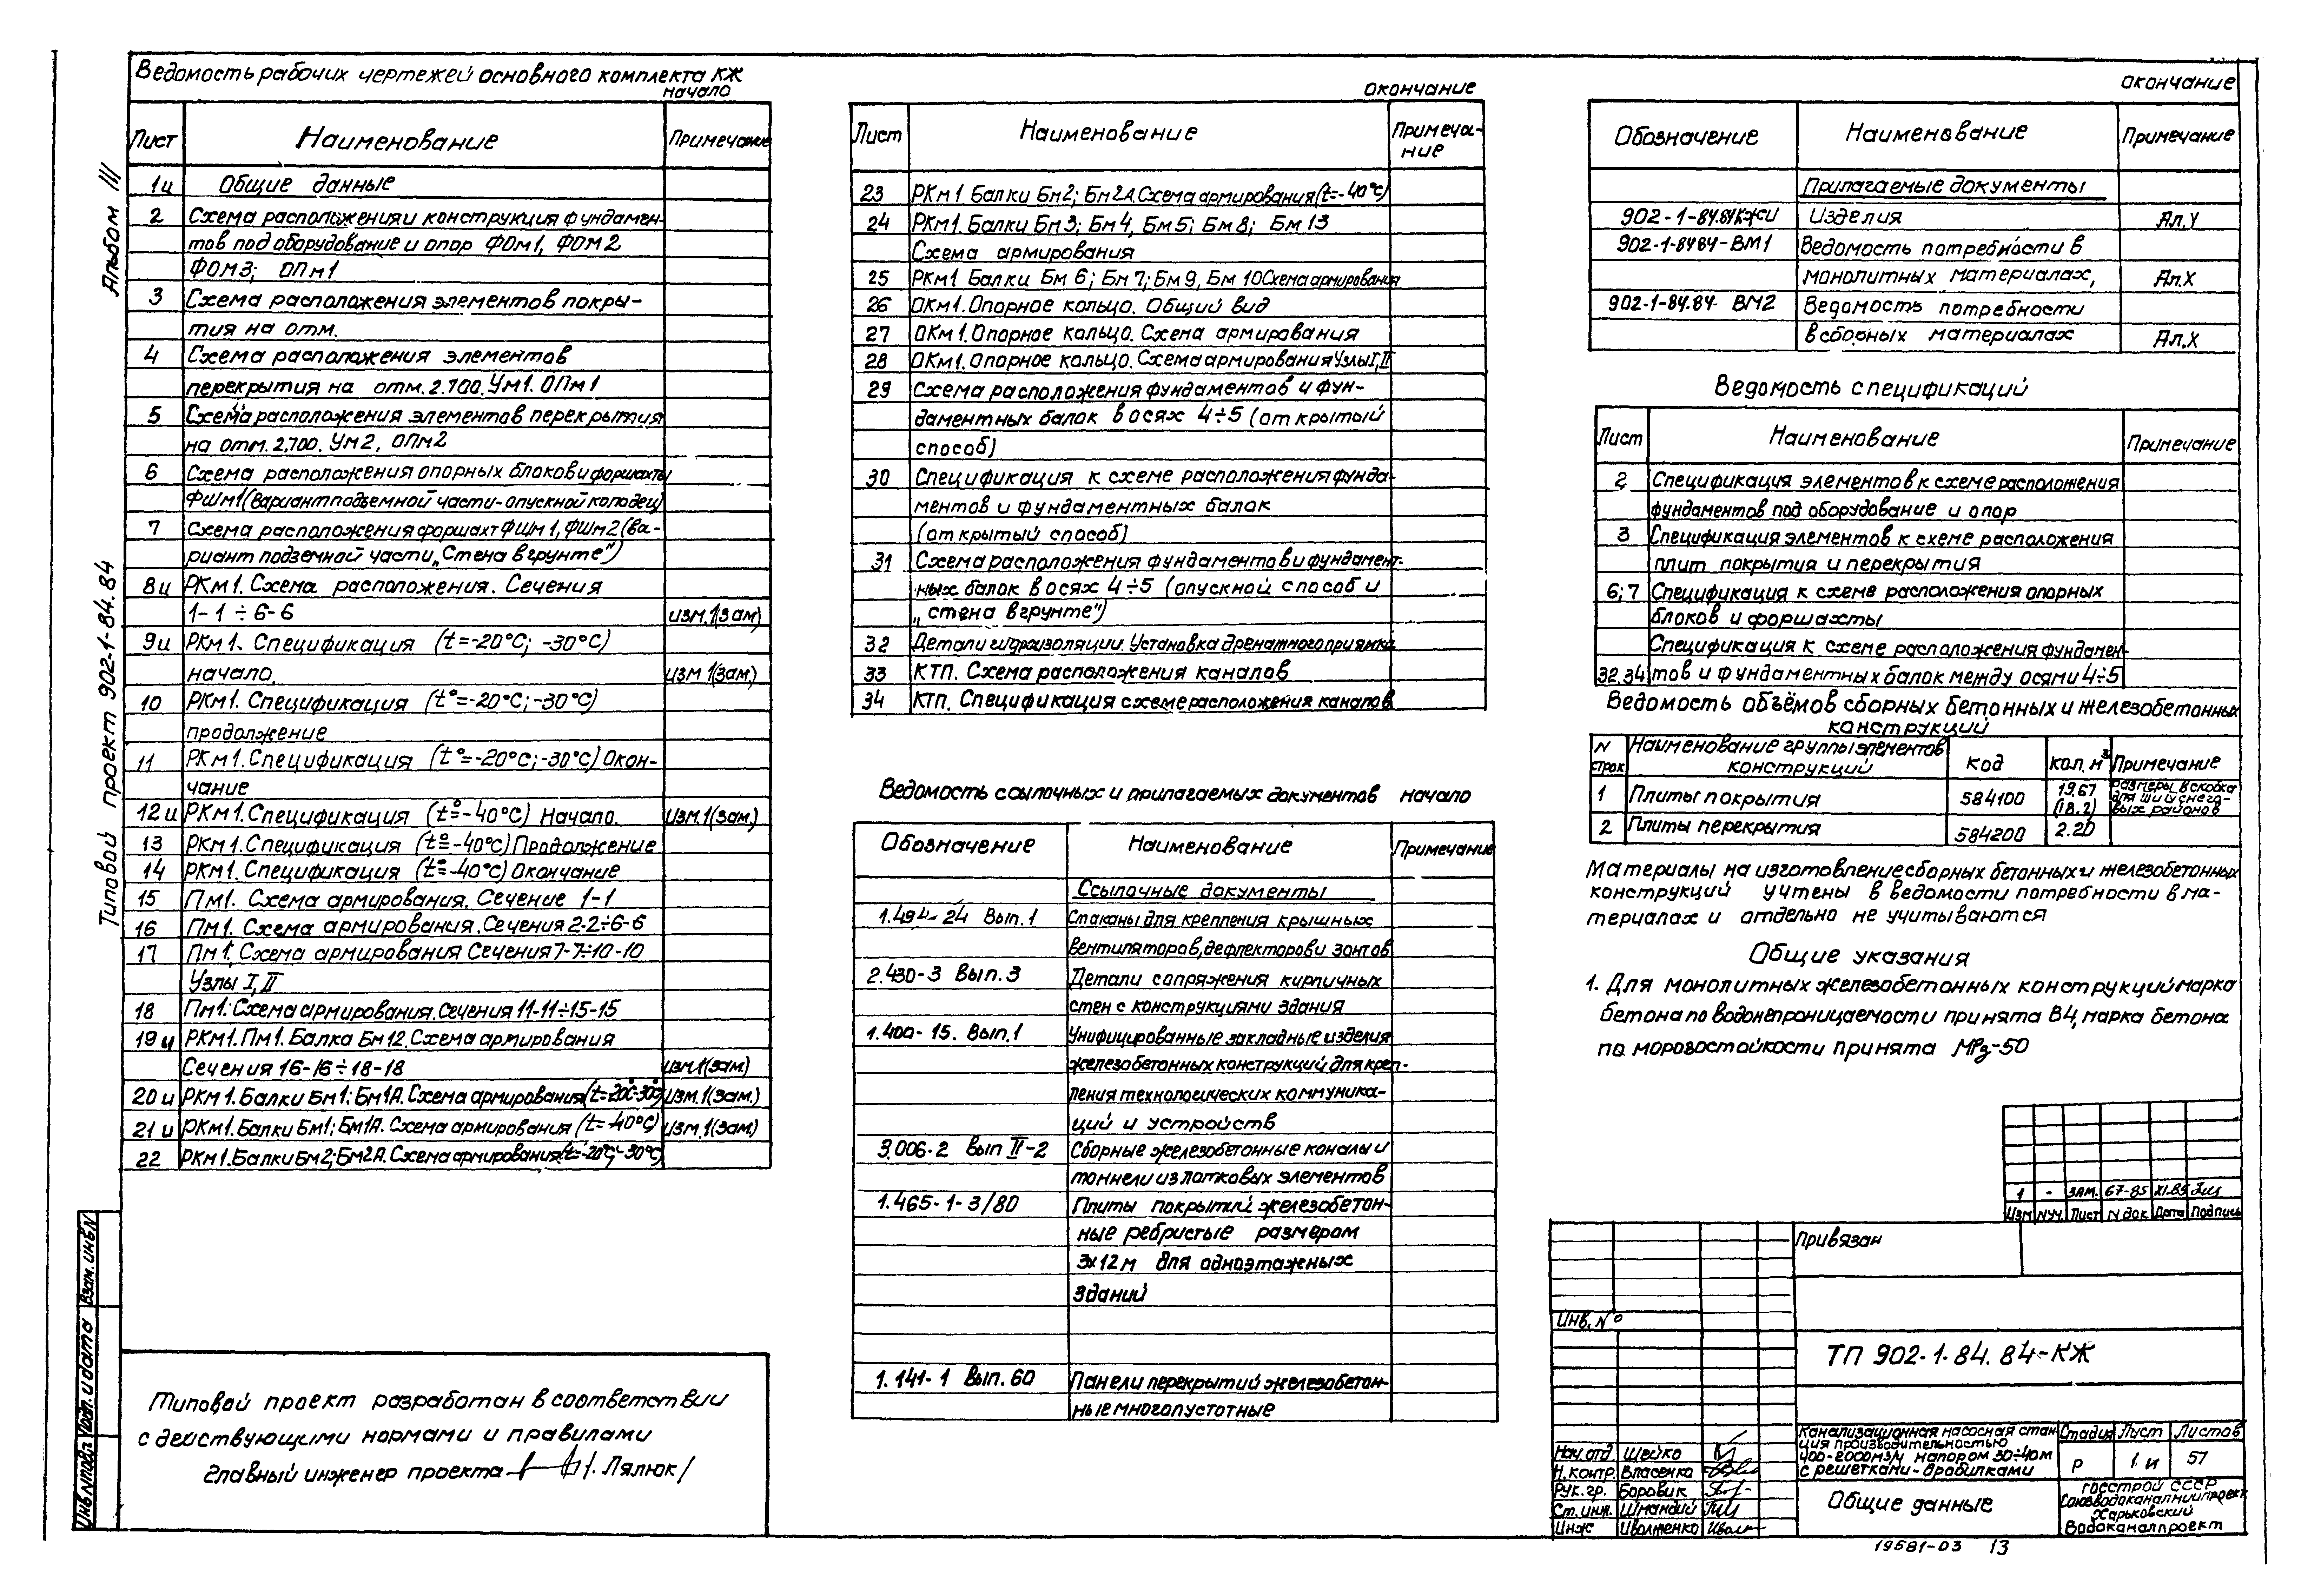 Альбом III
Типовой проект 902-1-84.84
Ведомость рабочих чертежей основного комплекта КЖ
начало
Лист Наименование Примечание
1и Общие данные
2 Схема расположения и конструкция фундамен-
тов под оборудование и опор ФОм1, ФОм2
ФОм3; ОПм1
3 Схема расположения элементов покры-
тия на отм.
4 Схема расположения элементов
перекрытия на отм. 2.700. Ум1. ОПм1
5 Схема расположения элементов перекрытия
на отм. 2,700. Ум2, ОПм2
6 Схема расположения опорных блоков и форшахты
ФШм1 (Вариант подземной части-опускной колодец)
7 Схема расположения форшахт ФШм1, ФШм2 (ва-
риант подземной части „Стена в грунте")
8и РКм1. Схема расположения. Сечения
1-1 ÷ 6-6 изм.1(зам)
9и РКм1. Спецификация (t=-20°С; -30°С)
начало. изм 1(зам.)
10 РКм1. Спецификация (t°=-20°С; -30°С)
продолжение
11 РКм1. Спецификация (t°=-20°С; -30°С) Окон-
чание
12и РКм1. Спецификация (t°=-40°С) Начало. изм.1(зам.)
13 РКм1. Спецификация (t°=-40°С) Продолжение
14 РКм1. Спецификация (t°=-40°С) Окончание
15 Пм1. Схема армирования. Сечение 1-1
16 Пм1. Схема армирования. Сечения 2-2÷6-6
17 Пм1. Схема армирования Сечения 7-7÷10-10
Узлы I, II
18 Пм1. Схема армирования. Сечения 11-11÷15-15
19и РКм1. Пм1. Балка Бм12. Схема армирования
Сечения 16-16÷18-18 изм.1(зам.)
20и РКм1. Балки Бм1; Бм1А. Схема армирования (t=-20°С-30°С) изм.1(зам.)
21и РКм1. Балки Бм1; Бм1А. Схема армирования (t=-40°С) изм.1(зам)
22 РКм1. Балки Бм2; Бм2А. Схема армирования (t=-20°С; -30°С)
Типовой проект разработан в соответствии
с действующими нормами и правилами
Главный инженер проекта Лялюк/
Инв.N подл. Подп. и дата Взам. инв.N
окончание
Лист Наименование Примеча-
ние
23 РКм1 Балки Бм2; Бм2А. Схема армирования (t=-40°С)
24 РКм1. Балки Бм3; Бм4, Бм5; Бм8; Бм13
Схема армирования
25 РКм1 Балки Бм6; Бм7; Бм9, Бм10 Схема армирования
26 ОКм1. Опорное кольцо. Общий вид
27 ОКм1. Опорное кольцо. Схема армирования
28 ОКм1. Опорное кольцо. Схема армирования Узлы I, II
29 Схема расположения фундаментов и фун-
даментных балок в осях 4÷5 (открытый
способ)
30 Спецификация к схеме расположения фунда-
ментов и фундаментных балок
(открытый способ)
31 Схема расположения фундаментов и фундамент-
ных балок в осях 4÷5 (опускной способ и
„стена в грунте")
32 Детали гидроизоляции. Установка дренажного приямка
33 КТП. Схема расположения каналов
34 КТП. Спецификация к схеме расположения каналов
Ведомость ссылочных и прилагаемых документов начало
Обозначение Наименование Примечание
Ссылочные документы
1.494-24 Вып.1 Стаканы для крепления крышных
вентиляторов, дефлекторов и зонтов
2.430-3 Вып.3 Детали сопряжения кирпичных
стен с конструкциями здания
1.400-15. Вып.1 Унифицированные закладные изделия
железобетонных конструкций для креп-
ления технологических коммуника-
ций и устройств
3.006-2 Вып II-2 Сборные железобетонные каналы и
тоннели из лотковых элементов
1.465-1-3/80 Плиты покрытий железобетон-
ные ребристые размером
3х12м для одноэтажных
зданий
1.141-1 Вып.60 Панели перекрытий железобетон-
ные многопустотные
окончание
Обозначение Наименование Примечание
Прилагаемые документы
902-1-84.84КЖИ Изделия Ал.V
902-1-8484-ВМ1 Ведомость потребности в
монолитных материалах, Ал.X
902-1-84.84-ВМ2 Ведомость потребности
в сборных материалах Ал.X
Ведомость спецификаций
Лист Наименование Примечание
2 Спецификация элементов к схеме расположения
фундаментов под оборудование и опор
3 Спецификация элементов к схеме расположения
плит покрытия и перекрытия
6; 7 Спецификация к схеме расположения опорных
блоков и форшахты
Спецификация к схеме расположения фундамен-
32.34 тов и фундаментных балок между осями 4÷5
Ведомость объёмов сборных бетонных и железобетонных
конструкций
N строк Наименование группы элементов конструкций Код Кол. м³ Примечание
1 Плиты покрытия 584100 19.67 (18.2) Размеры в скобках для ш и ш снего- вых районов
2 Плиты перекрытия 584200 2.20
Материалы на изготовление сборных бетонных и железобетонных
конструкций учтены в ведомости потребности в ма-
териалах и отдельно не учитываются
Общие указания
1. Для монолитных железобетонных конструкций марка
бетона по водонепроницаемости принята В4, марка бетона
по морозостойкости принята МРз-50
1 - ЗАМ. 67-85 XI.85
Изм N уч. Лист N док Дата Подпись
Привязан
Инв. N°
ТП 902-1-84.84-КЖ
Нач.отд. Шейко
Н.контр. Власенко
Рук.гр. Боровик
Ст.инж. Шмандий
Инж Иволженко
Канализационная насосная стан-
ция производительностью
400-2000м3/ч напором 30÷40м
с решетками-дробилками
Стадия Лист Листов
Р 1.и 57
Общие данные
Госстрой СССР
Союзводоканалниипроект
Харьковский
Водоканалпроект
19581-03 13